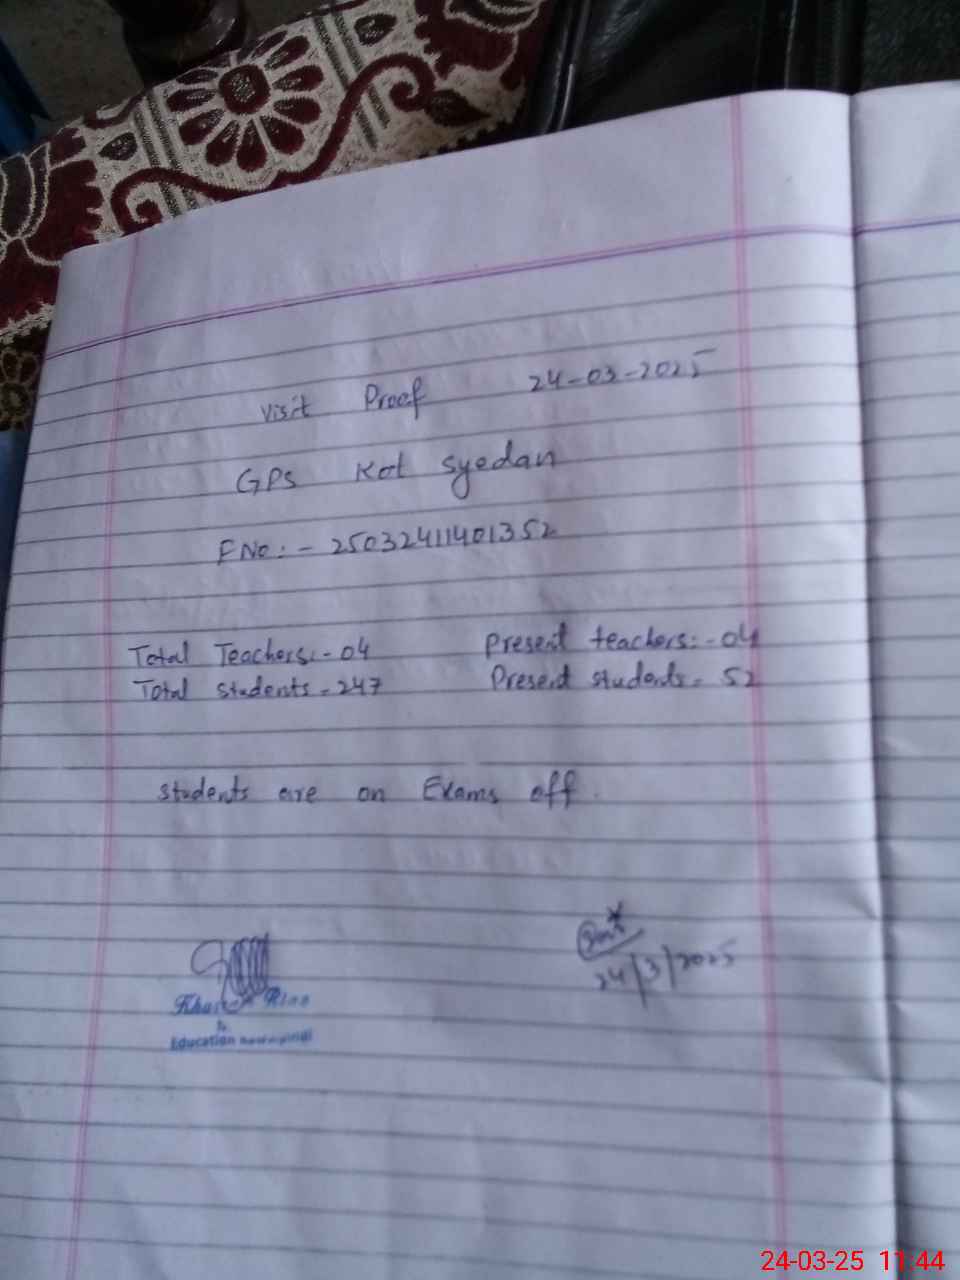 Visit Proof 24-03-2025
GPS Kot Syedan
F No:- 25032411401352
Total Teachers:-04 Present teachers:-04
Total students-247 Present students- 52
students are on Exams off.
24/3/2025
Education
24-03-25 11:44